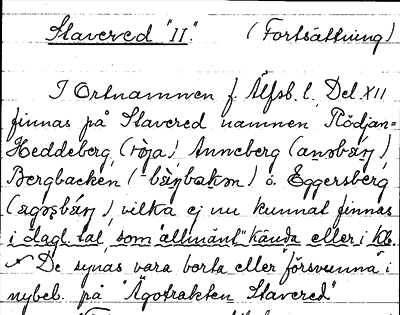 Stavered "II." (Fortsättning)
I Ortnamnen f. Älfsb. l. Del XII
finnas på Stavered namnen Rödjan=
Heddeberg, (röja) Anneberg
Bergbacken o. Eggersberg
vilka ej nu kunnat finnas
i dagl. tal, som "allmänt" kända eller i kb.
De synas vara borta eller "försvunna" i
nybeb. på "Ägotrakten Stavered"